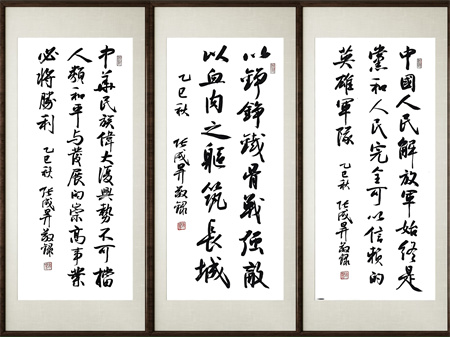 中國人民解放軍始終是
黨和人民完全可以信賴的
英雄軍隊 乙巳秋 任成昇敬錄
以錚錚鐵骨戰强敵
以血肉之軀筑長城
乙巳秋 任成昇敬錄
中華民族偉大復興勢不可擋
人類和平与發展的崇高事業
必將勝利 乙巳秋 任成昇敬錄